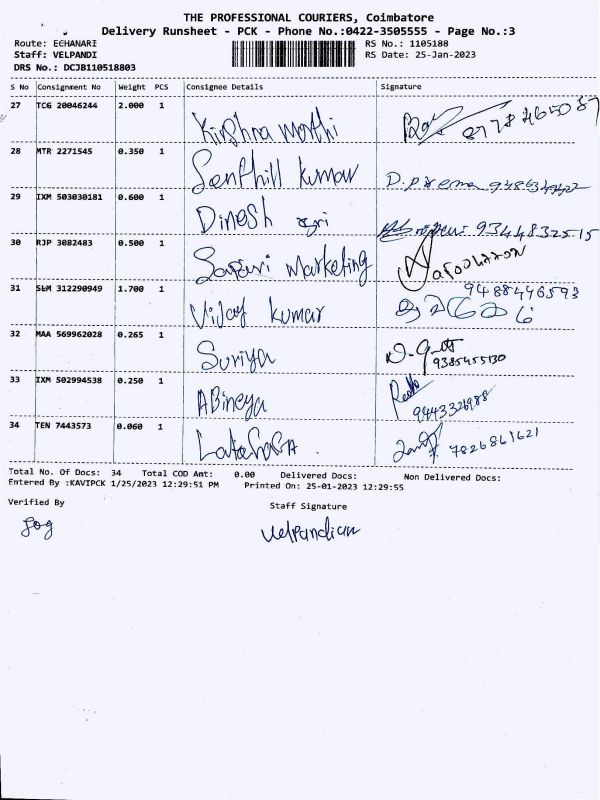 THE PROFESSIONAL COURIERS, Coimbatore
Delivery Runsheet - PCK - Phone No.:0422-3505555 - Page No.:3
Route: EEHANARI RS No.: 1105188
Staff: VELPANDI RS Date: 25-Jan-2023
DRS No.: DCJB110518803
S No Consignment No Weight PCS Consignee Details Signature
27 TCG 20046244 2.000 1 Kirshna morthi
28 MTR 2271545 0.350 1 Senthill kumar D.prema
29 IXM 503030181 0.600 1 Dinesh 9344832515
30 RJP 3082483 0.500 1 Marketing
31 SLM 312290949 1.700 1 Vijay kumar 9488446593
32 MAA 569962028 0.265 1 Suriya 9385455130
33 IXM 502994538 0.250 1 ABineya 9443326988
34 TEN 7443573 0.060 1 7826861621
Total No. Of Docs: 34 Total COD Amt: 0.00 Delivered Docs: Non Delivered Docs:
Entered By :KAVIPCK 1/25/2023 12:29:51 PM Printed On: 25-01-2023 12:29:55
Verified By Staff Signature
Velpandian